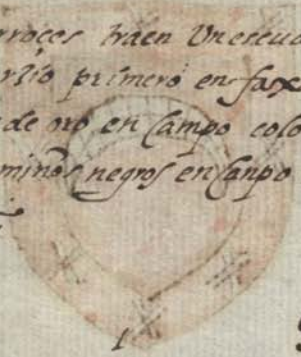 rroces traen Un escud
primero en fax
de oro en Campo colo
mjnos negros en Canpo
1